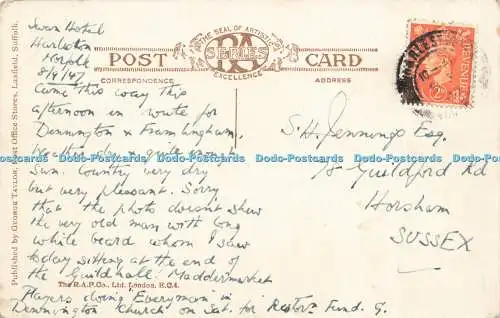 Published by George Taylor, Post Office Stores, Laxfield, Suffolk.
"THE SEAL OF ARTISTIC
RA
SERIES
EXCELLENCE
POST CARD
CORRESPONDENCE
ADDRESS
Swan Hotel
Harleston
Norfolk
8/9/47
Came this way this
afternoon in route for
Dennington & Framlingham.
Weather dry & quite
Sun. Country very dry
but very pleasant. Sorry
that the photo doesn't shew
the very old man with long
white beard whom I saw
today sitting at the end of
the Guildhall. Maddermarket
Players doing "Everyman" in
Dennington Church on Sat. for Restorn Fund. G.
The R.A.P. Co., Ltd. London, E.C.4.
S.H. Jennings Esq.
15 Guildford Rd
Horsham
SUSSEX
REVENUE
Dodo-Postcards Dodo-Postcards Dodo-Postcards Dodo-Postcards Dodo-Postcards Dodo-Postcards